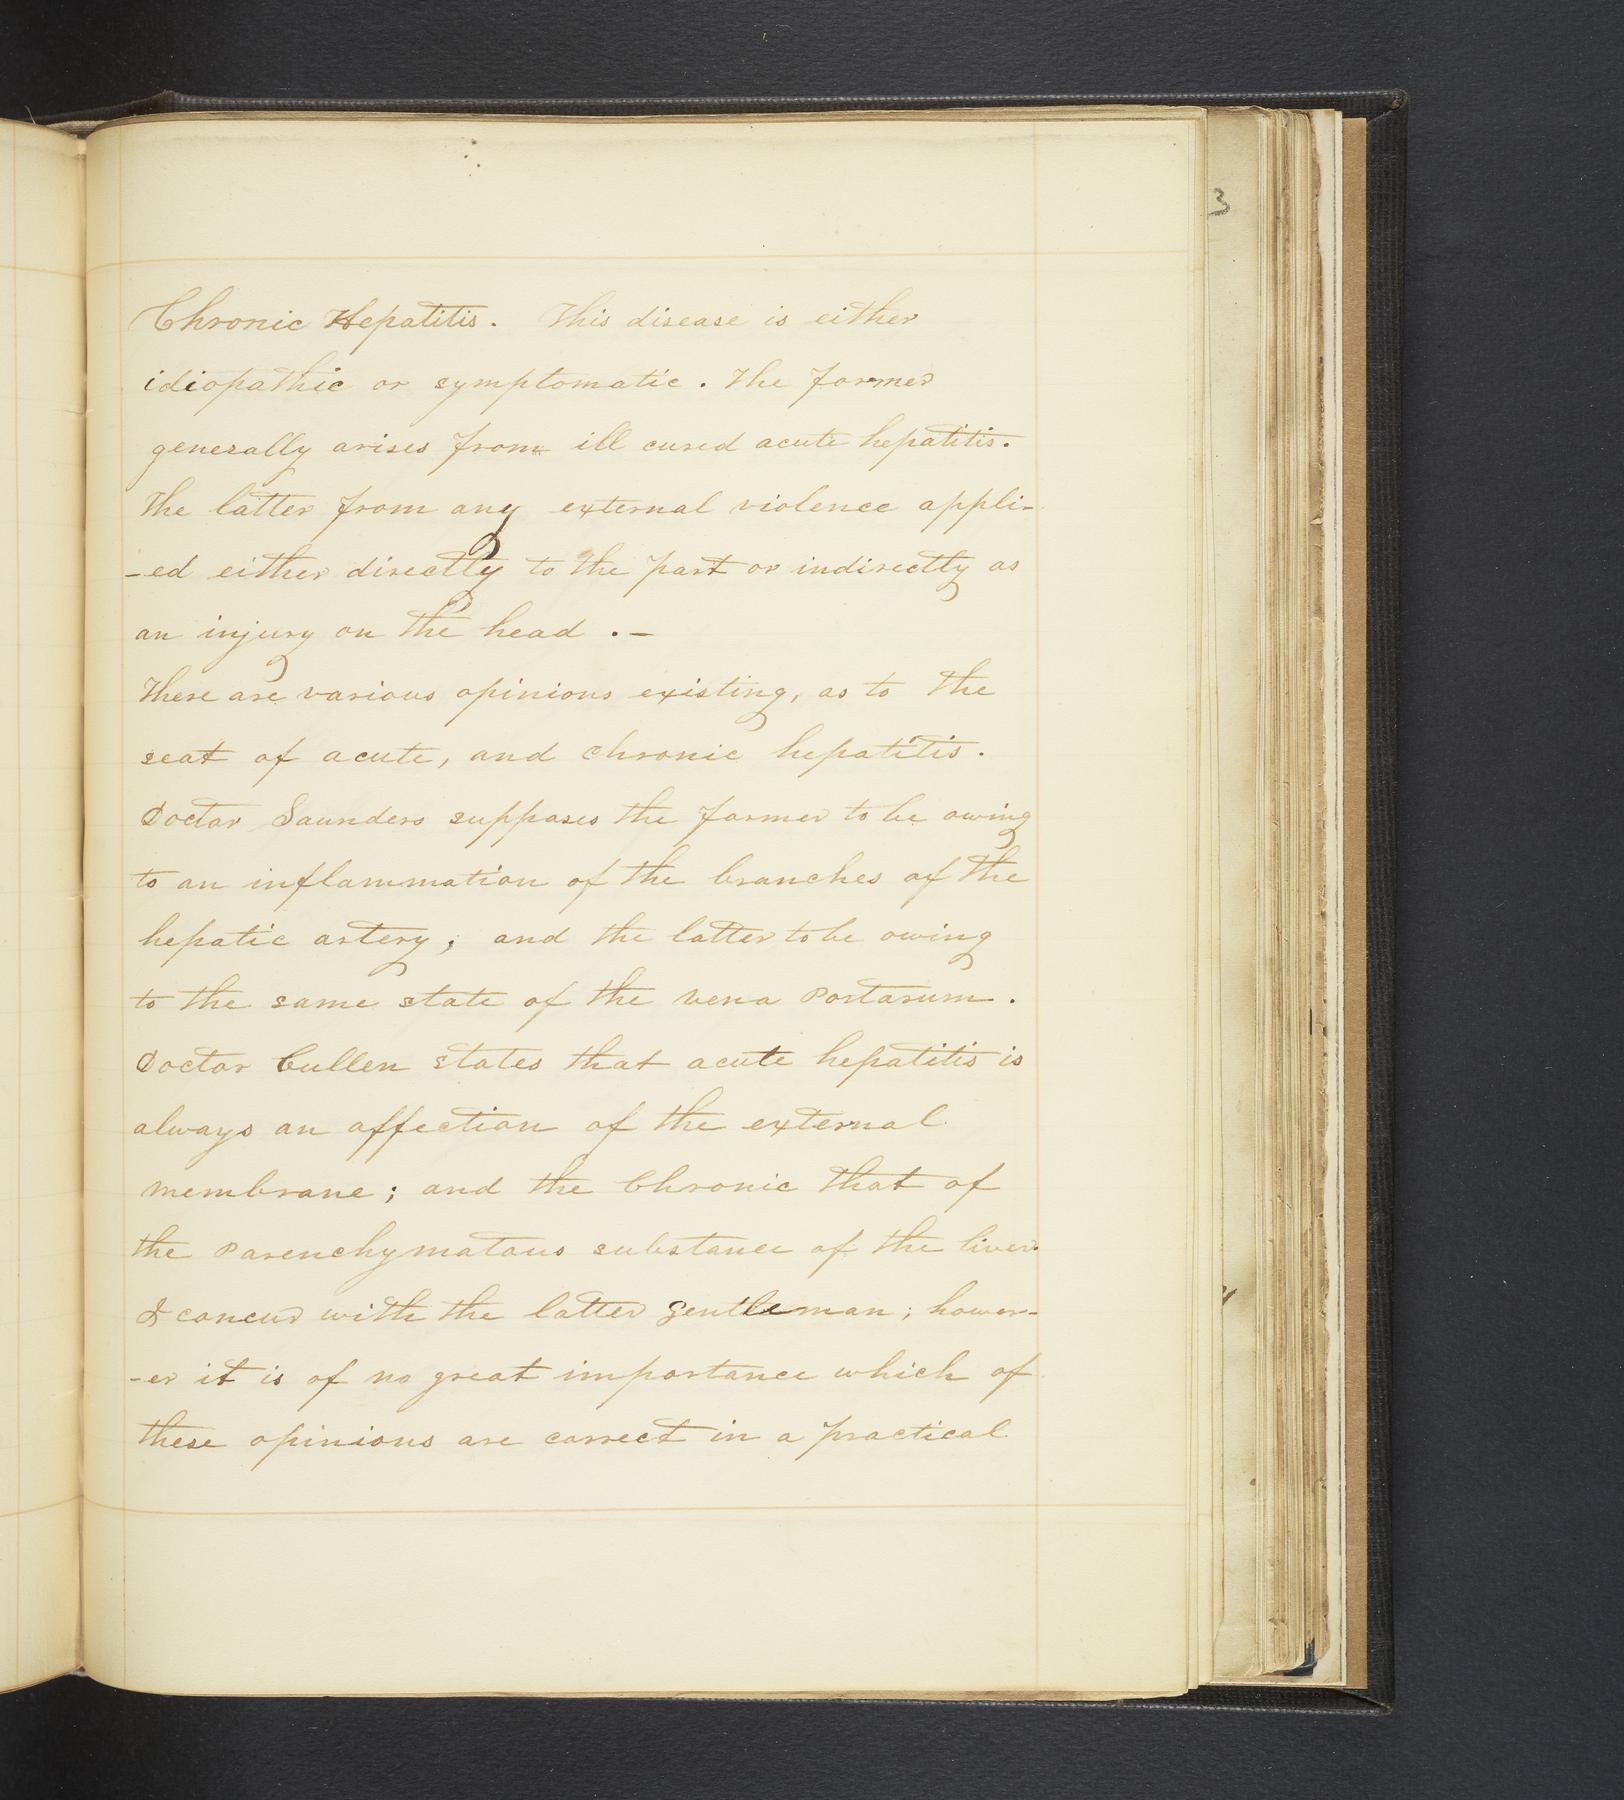 3
Chronic Hepatitis. This disease is either
idiopathic or symptomatic. The former
generally arises from ill cured acute hepatitis.
The latter from any external violence appli-
-ed either directly to the part or indirectly as
an injury on the head . —
There are various opinions existing, as to the
seat of acute, and chronic hepatitis.
Doctor Saunders supposes the former to be owing
to an inflammation of the branches of the
hepatic artery; and the latter to be owing
to the same state of the vena Portarum.
Doctor Cullen states that acute hepatitis is
always an affection of the external
membrane; and the Chronic that of
the Parenchymatous substance of the liver.
I concur with the latter gentleman; howev-
-er it is of no great importance which of
these opinions are correct in a practical